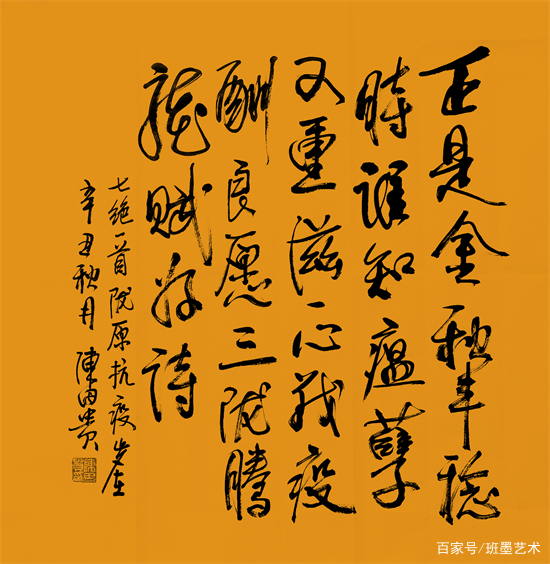 正是金秋丰稔
時谁知瘟孽
又重滋一心战疫
酬良愿三陇腾
龙赋好诗
七绝一首陇原抗疫 岁在
辛丑秋月 陳田贵
百家号/班墨艺术